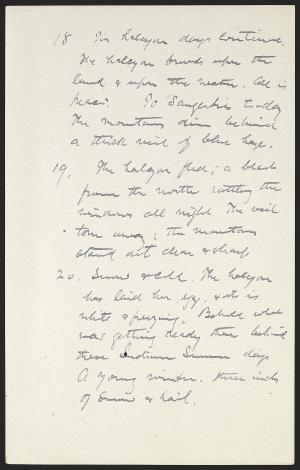 18 The halcyon days continue.
The halcyon broods upon the
land & upon the water. All is
peace. To Saugerties to-day
The mountains dim behind
a thick veil of blue haze.
19, The halcyon fled; a blast
from the north rattling the
windows all night. The veil
torn away; the mountains
stand out clear & sharp
20. Snow & cold. The halcyon
has laid her egg, & it is
white & freezing. Behold what
was getting ready there behind
these Indian Summer days
A young winter. three inches
of snow & hail.